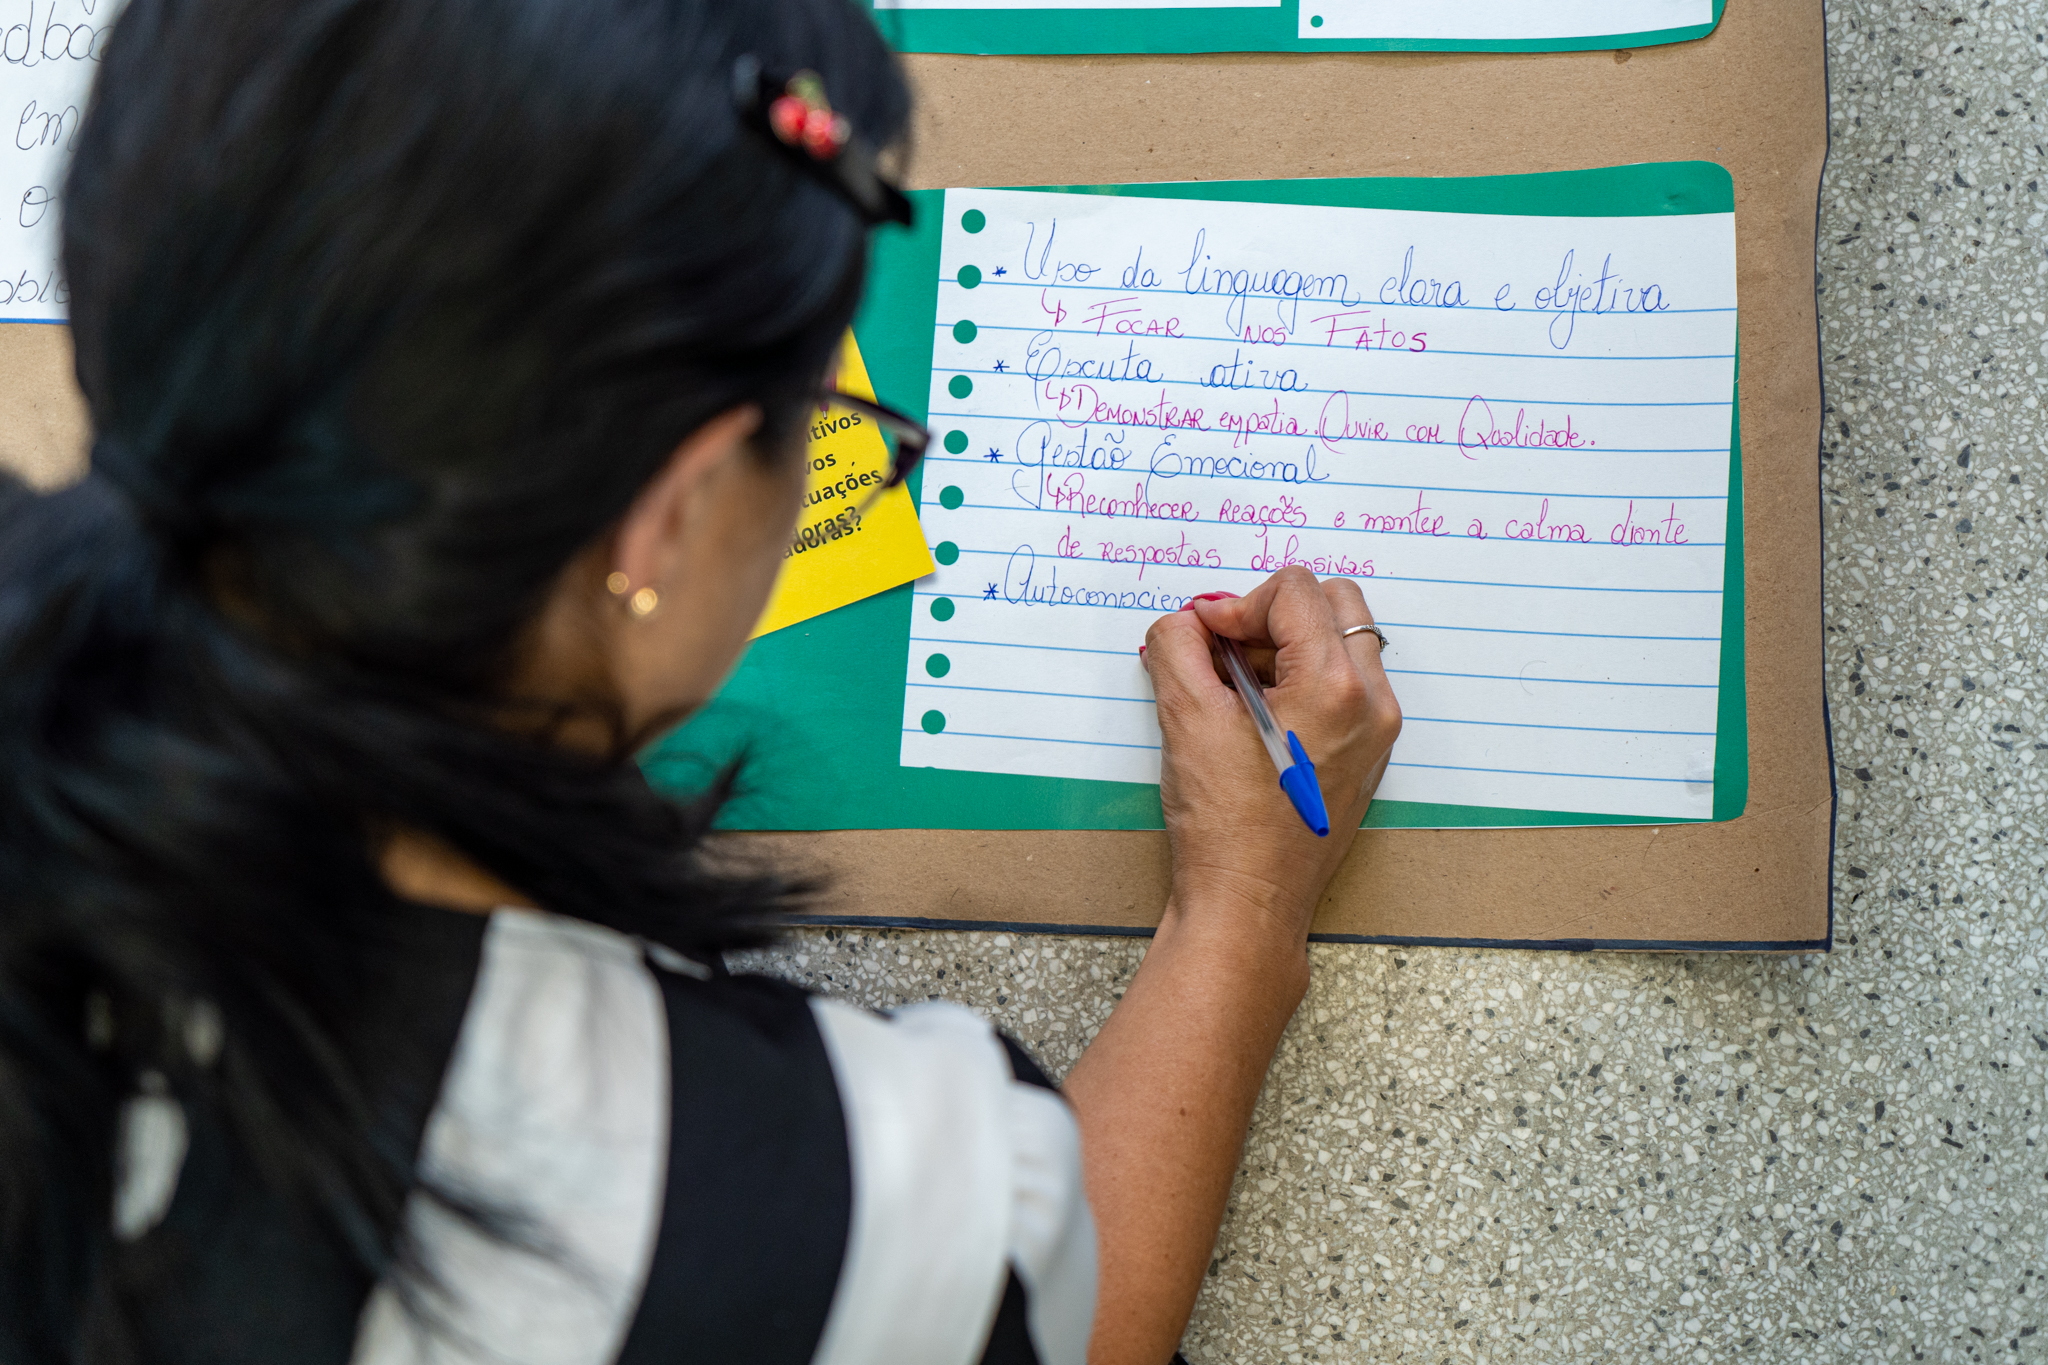 em
o
* Uso da linguagem clara e objetiva
↳ Focar nos Fatos
* Escuta ativa
↳ Demonstrar empatia. Ouvir com Qualidade.
* Gestão Emocional
↳ Reconhecer reações e manter a calma diante
de respostas defensivas.
* Autoconscien
itivos
vos
tuações
doras?
adoras?